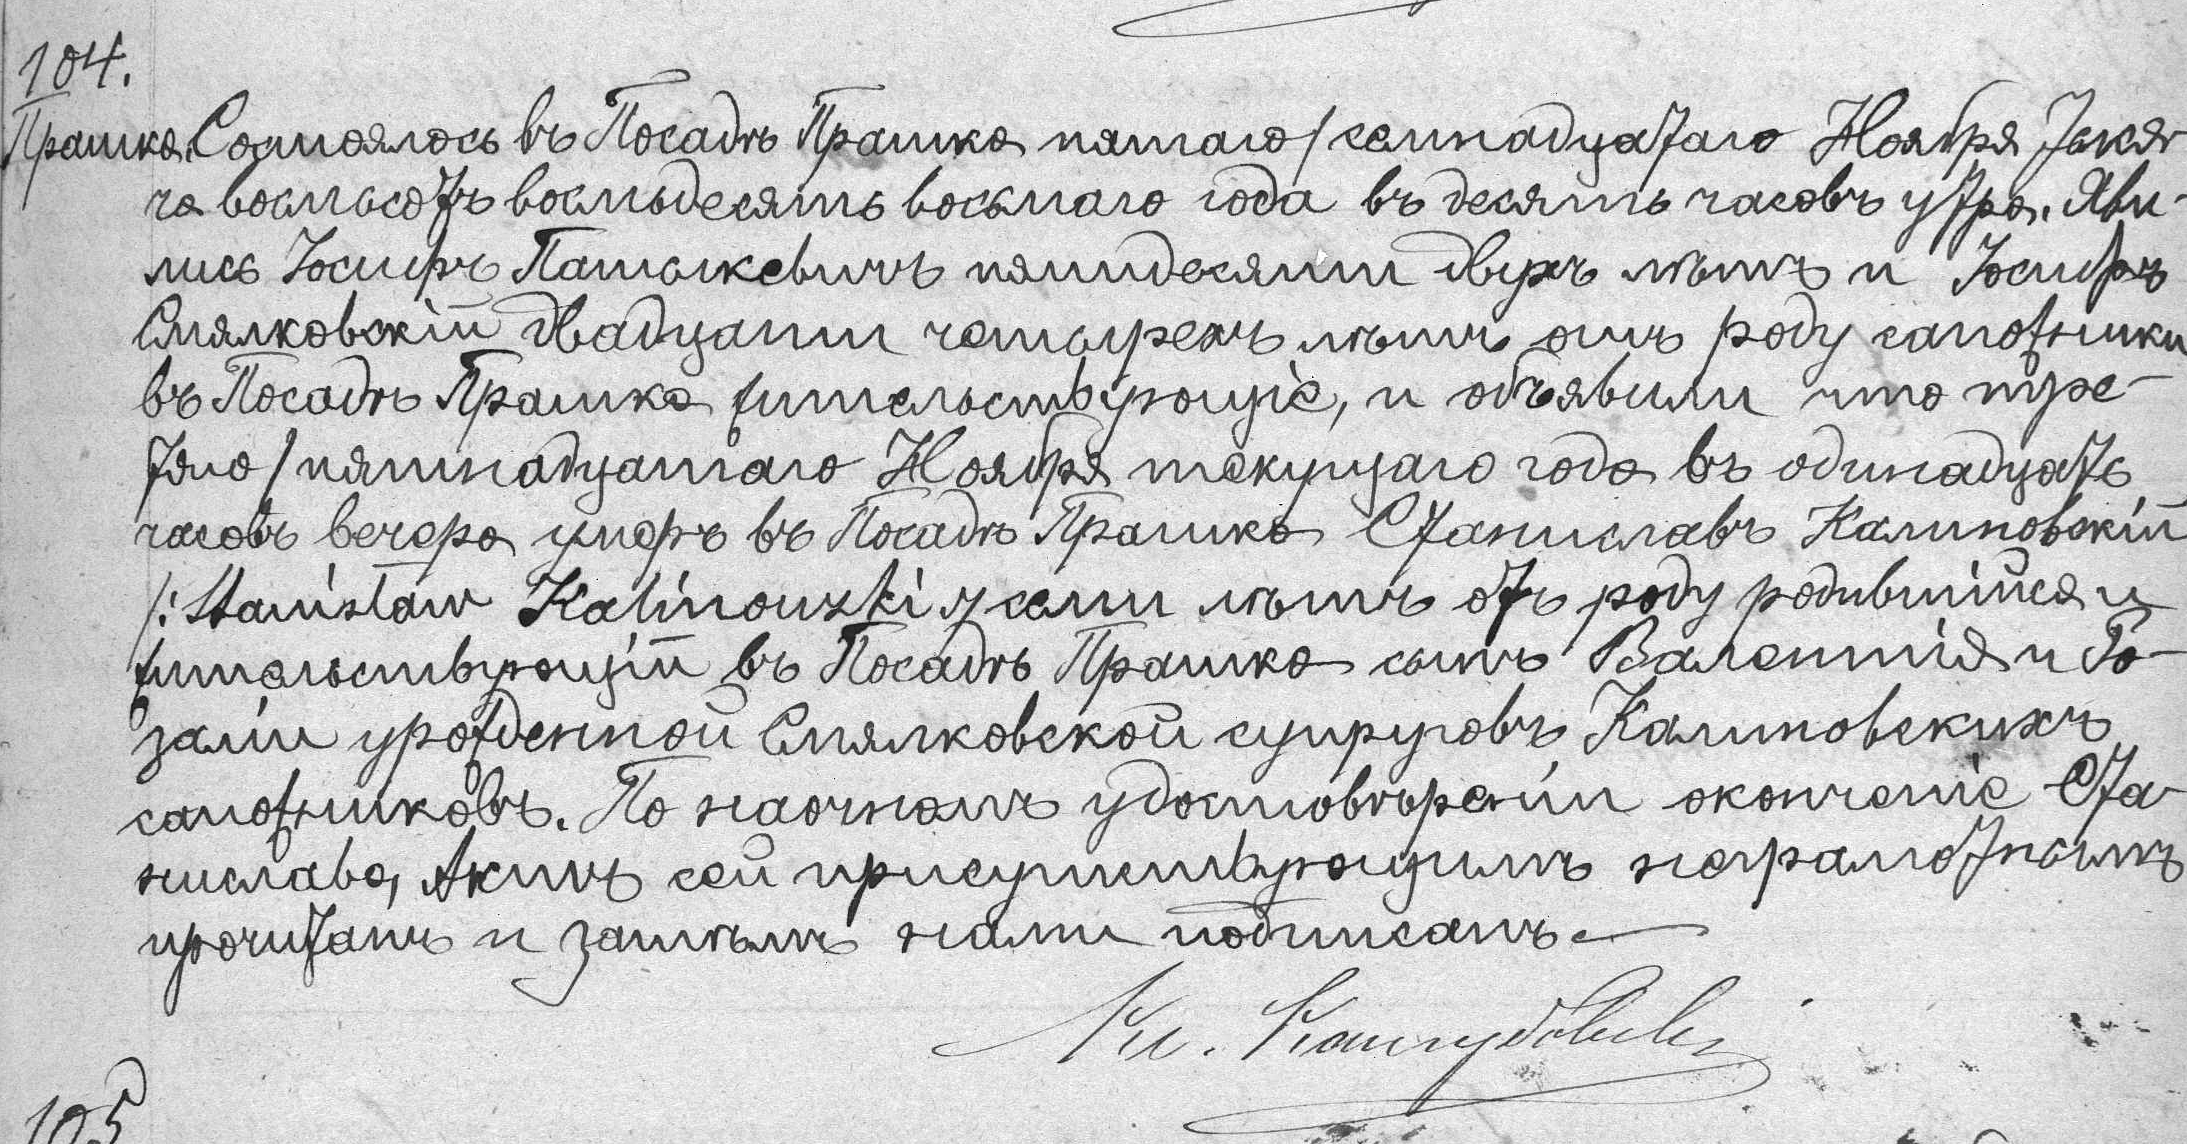 104.
Прашка. Состоялось въ Посадѣ Прашка пятаго/семнадцатаго Ноября Тыся-
ча восмьсотъ восмьдесятъ восьмаго года въ десять часовъ утра. Яви-
лись Іосифъ Патыкевичъ пятидесяти двухъ лѣтъ и Іосифъ
Смялковскій двадцати четырехъ лѣтъ отъ роду сапожники
въ Посадѣ Прашка жительствующіе, и объявили что тре-
тяго/пятнадцатаго Ноября текущаго года въ одинадцать
часовъ вечера умеръ въ Посадѣ Прашка Станиславъ Калиновскій
/: Stanisław Kalinowski :/ семи лѣтъ отъ роду родившійся и
жительствующій въ Посадѣ Прашка сынъ Валентія и Ро-
заліи урожденной Смялковской супруговъ Калиновскихъ
сапожниковъ. По наочномъ удостовѣреніи окончаніе Ста-
нислава, Актъ сей присутствующимъ неграмотнымъ
прочитанъ и затѣмъ нами подписанъ.
Кс.
105